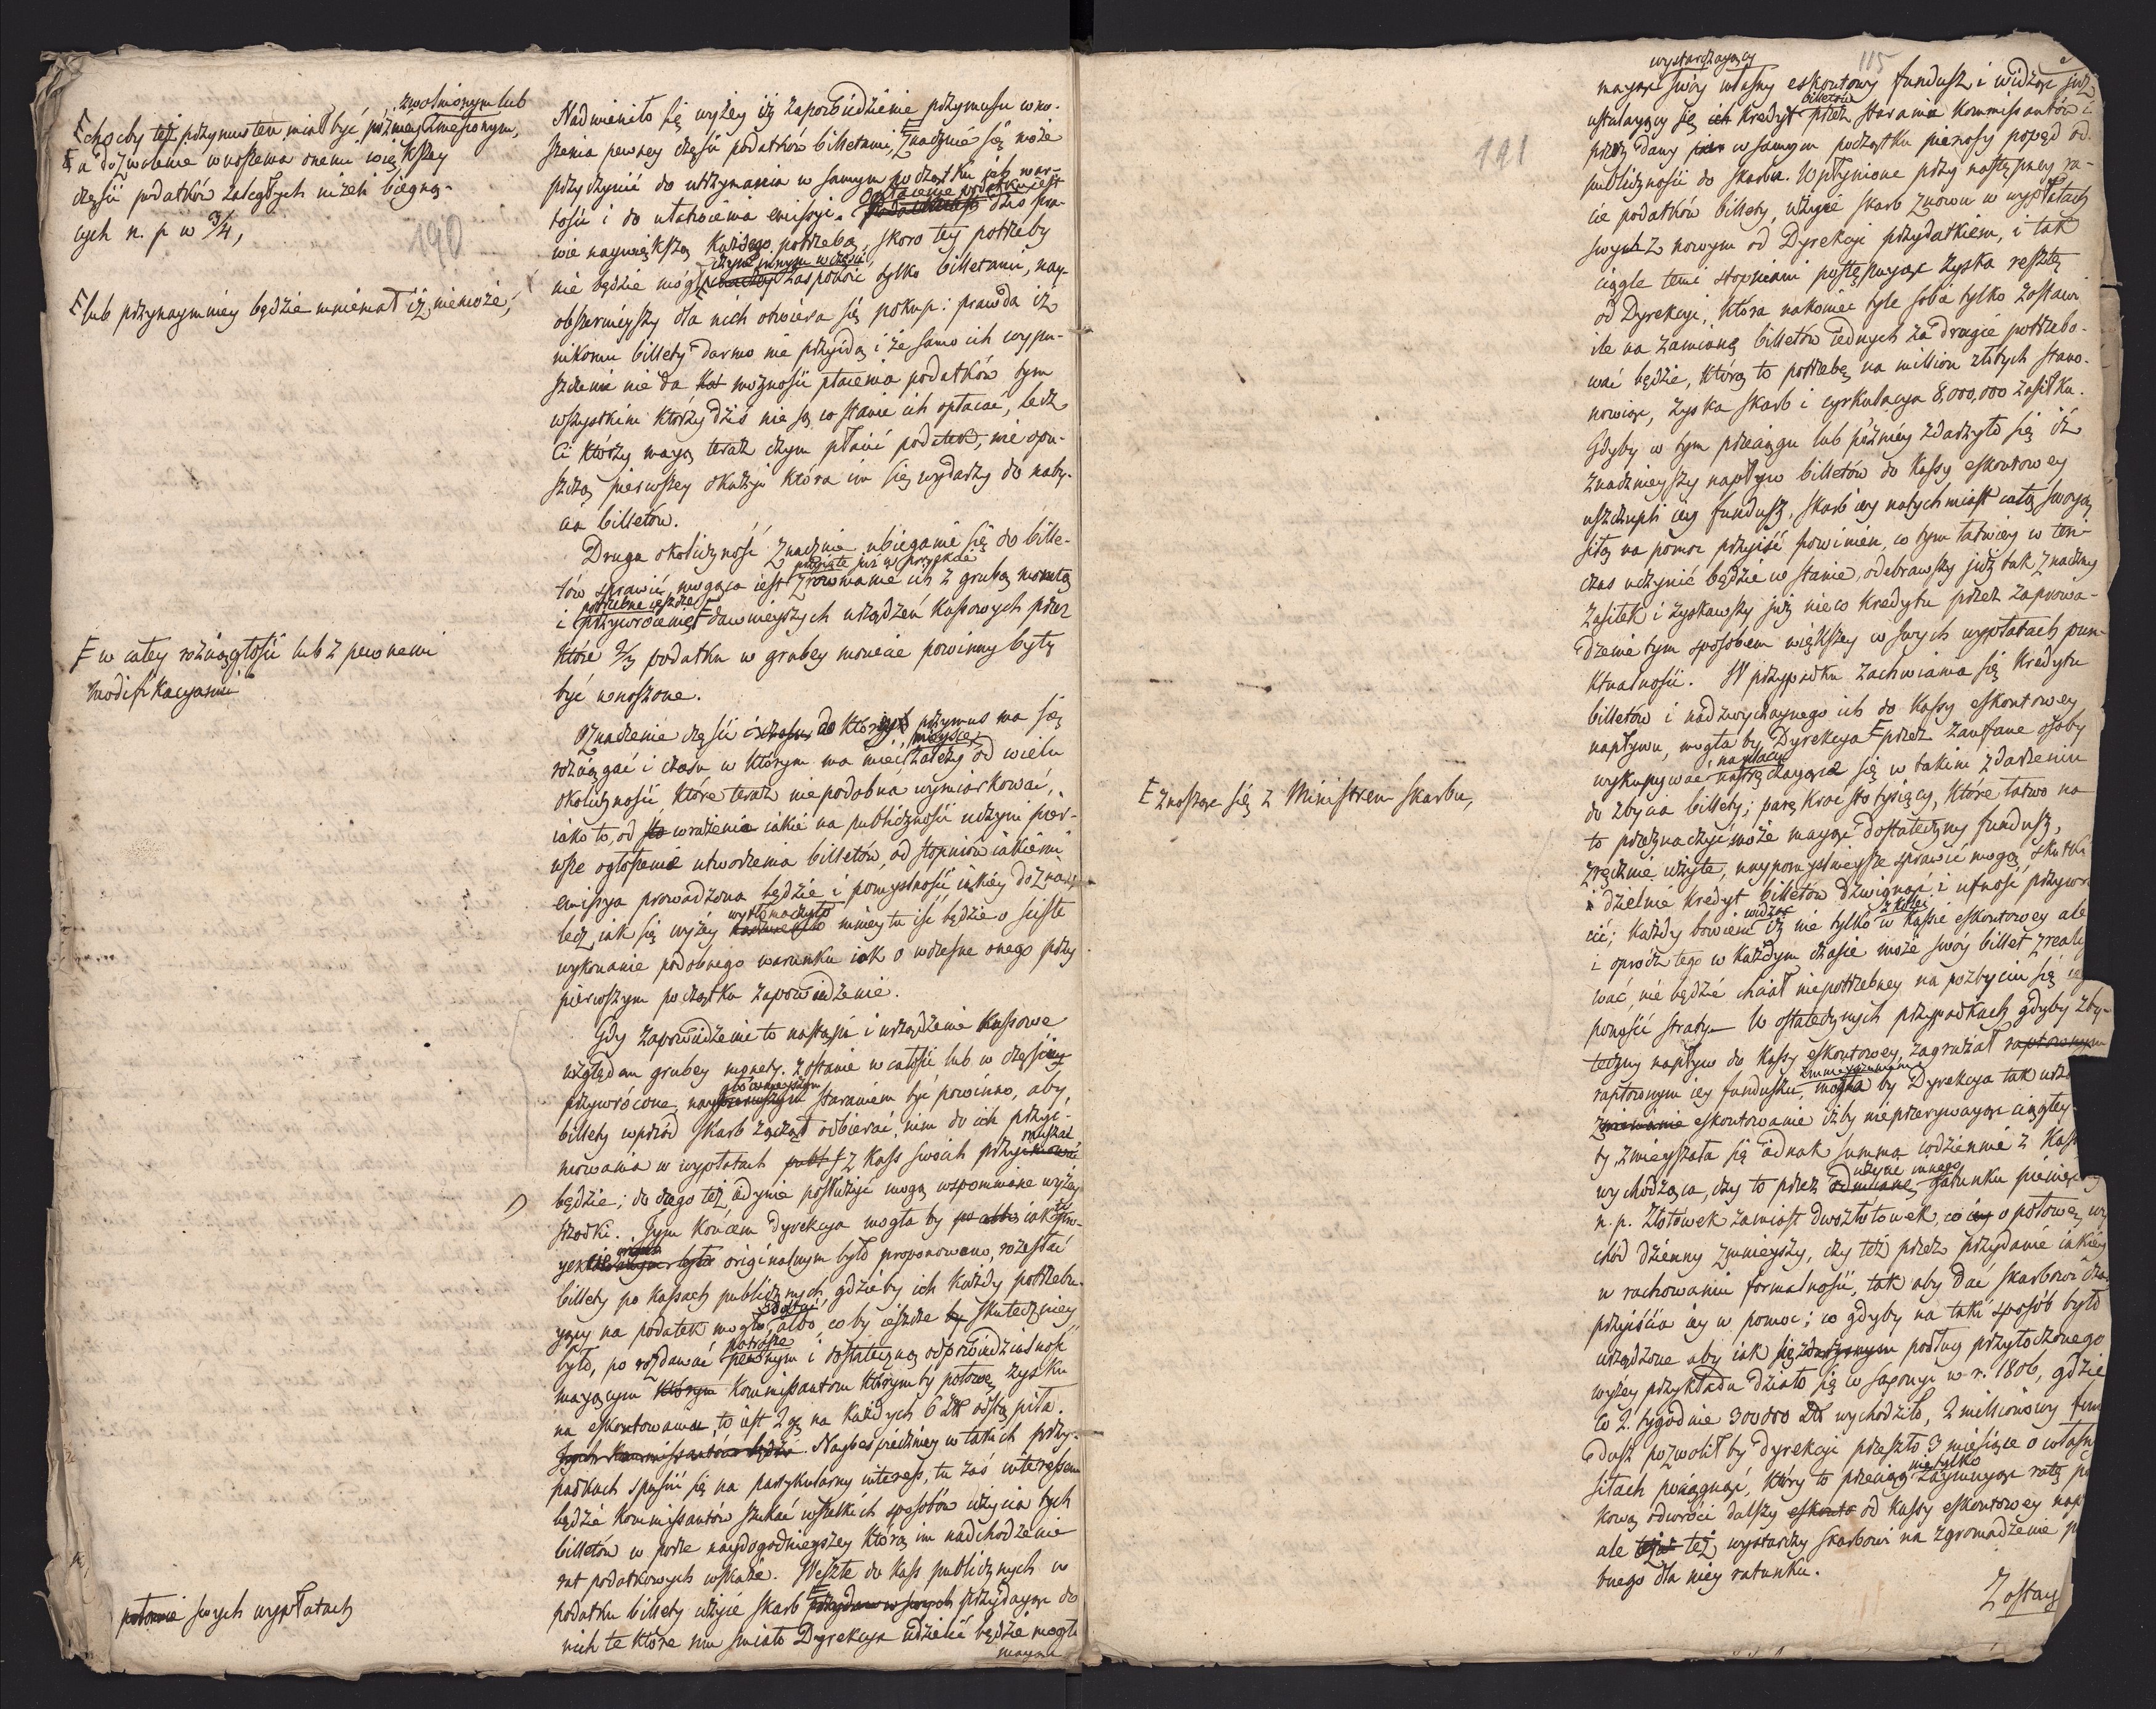 zwolnionym lub
choćby też przymus ten miał być później zmienionym,
a dozwolenie wnoszenia onemi większey
części podatków zaległych niżeli biegną-
cych n. p. w 3/4,
190
lub przynaymniey będzie mniemał iż niemoże,
w całey rozciągłości lub z pewnemi
modifikacyami
potomie swych wypłatach
Nadmieniło się wyżey iż zapowiedzenie przymusu wno-
szenia pewney części podatków biletami, znacznie się może
przyczynić do utrzymania w samym początku ich war-
tości i do ułatwienia emissyi. Opłacenie podatku jest dziś pra-
wie naywiększą każdego potrzebą, skoro tey potrzeby
nie będzie mógł czym innym w części zaspokoić tylko billetami, nay-
obszernieyszy dla nich otwiera się pokup: prawda iż
nikomu billety darmo nie przyidą i że samo ich wypu-
szczenie nie da możności płacenia podatków tym
wszystkim którzy dziś nie są w stanie ich opłacać, lecz
Ci którzy maią teraz czym płacić podatek, nie opu-
szczą pierwszey okazyi która im się wydarzy do naby-
cia billetów.
Druga okoliczność znacznie ubieganie się do bille-
tów sprawić mogąca iest przyięte już w projekcie zrównanie ich z grubą monetą
i potrzebne ieszcze przywrócenie dawnieyszych urządzeń kassowych przez
które 2/3 podatku w grubey monecie powinny były
być wnoszone.
Oznaczenie części i czasu do których przymus ma się
rozciągać i czasu w którym ma mieć mieysce, zależy od wielu
okoliczności, które teraz niepodobna wymiarkować,
iako to, od wrażenia iakie na publiczności uczyni pier-
wsze ogłoszenie utworzenia billetów, od stopniów iakiemi
emissya prowadzona będzie i pomyślności iakiey dozna,
lecz iak się wyżey wytłomaczyło mniey tu iść będzie o ściśłe
wykonanie podobnego warunku iak o wczesne onego przy
pierwszym początku zapowiedzenie.
Gdy zapowiedzenie to nastąpi i urządzenie kassowe
względem grubey monety zostanie w całości lub w części
przywrócone, naygłównieyszym staraniem być powinno, aby
billety wprzód skarb zaczął odbierać, nim do ich przyi-
mowania w wypłatach z kass swoich przymuszać
będzie; do czego też iedynie posłużyć mogą wspomnione wyżey
środki. Tym końcem Dyrekcya mogła by iak w pro-
yekcie originalnym było proponowano, rozesłać
billety po kassach publicznych, gdzieby ich każdy potrzebu-
iący na podatek mógł dostać, albo, coby ieszcze skuteczniey
było, po rozdawać potrosze pewnym i dostateczną odpowiedzialność
maiącym Kommissantom którymby połowę zysku
na eskontowaniu, to iest 2 gr. na każdych 6 Zł odstąpiła.
Tych Kommissantów będzie. Naybezpieczniey w takich przy-
padkach spuścić się na partykularny interess, tu zaś interessem
będzie Kommissantów szukać wszelkich sposobów użycia tych
billetów w porze naydogodnieyszey którą im nadchodzenie
rat podatkowych wskaże. Weszłe do kass publicznych w
podatku billety użyie skarb przydaiąc do
nich te które mu śmiało Dyrekcya udzielić będzie mogła
maiąca
115
191
wystarczaiący
maiąc swóy własny eskontowy fundusz i widząc już
ustalaiący się billetów kredyt przez starania kommissantów i
przez dany w samym początku pierwszy popęd od
publiczności do skarbu. Wpłynione przy następney ra-
cie podatków billety, użyie skarb znowu w wypłatach
swych z nowym od Dyrekcyi przydatkiem, i tak
ciągle temi stopniami postępuiąc zyska resztę
od Dyrekcyi, która nakoniec tyle sobie tylko zostawi
ile na zamianę billetów iednych za drugie potrzebo-
wać będzie, którą to potrzebę na million złotych stano-
nowiąc, zyska skarb i cyrkulacya 8,000,000 zasiłku.
Gdyby w tym przeciągu lub później zdarzyło się iż
znacznieyszy napływ billetów do kassy eskontowey
uszczupli iey fundusz, skarb iey natychmiast całą swoią
siłą na pomoc przyiść powinien, co tym łatwiey w ten
czas uczynić będzie w stanie, odebrawszy już tak znaczny
zasiłek i zyskawszy już nieco kredytu przez zaprowa-
dzenie tym sposobem większey w swych wypłatach pun-
ktualności. W przypadku zachwiania się kredytu
billetów i nadzwyczaynego ich do kassy eskontowey
napływu, mogła by Dyrekcya przez zaufane osoby
wykupywać na placu nastręczaiące się w takim zdarzeniu
do zbycia billety; parę kroć sto tysięcy, które łatwo na
to przeznaczyć może maiąc dostateczny fundusz,
zręcznie użyte, naypomyślnieysze sprawić mogą skutki
i dzielnie kredyt billetów dźwignąć i ufność przywró-
cić; każdy bowiem widząc iż nie tylko w kassie eskontowey ale
i oprócz tego w każdym czasie może swóy billet zreali
wać, nie będzie chciał niepotrzebney na pozbyciu się ie
ponosić straty. W ostatecznych przypadkach gdyby zby-
teczny napływ do kassy eskontowey, zagrażał raptownym
raptownym iey funduszu zmnieyszeniem, mogła by Dyrekcya tak urz
eskontowanie iżby nieprzerywaiąc ciągłey
ty zmnieyszała się iednak summa codziennie z Kas
wychodząca, czy to przez użycie innego gatunku pienię
n. p. Złotówek zamiast dwuzłotówek, co o połowę wy
chód dzienny zmnieyszy, czy też przez przydanie iakiey
w rachowaniu formalności, tak aby dać skarbowi cza
przyiścia iey w pomoc; co gdyby na taki sposób było
urządzone aby iak podług przytoczonego
wyżey przykładu działo się w Saxonyi w r. 1806, gdzie
co 2. tygodnie 300000 Zł wychodziło, 2 millionowy fun
dusz pozwolił by Dyrekcyi przeszło 3 miesiące o własn
siłach pociągnąć, który to przeciąg nie tylko zaymuiąc ratę po
kową odwróci dalszy od kassy eskontowey nap
ale też wystarczy skarbowi na zgromadzenie p
bnego dla niey ratunku.
Zostay
znosząc się z Ministrem Skarbu,